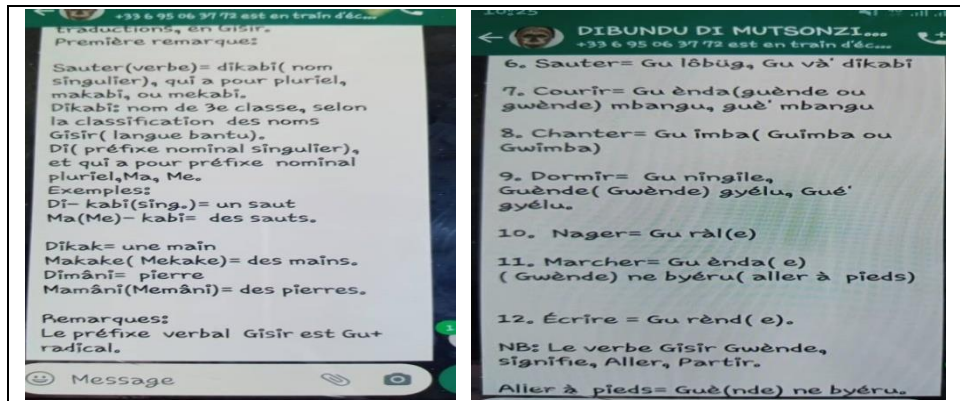 +33 6 95 06 37 72 est en train d'éc...
traductions, en Gisir.
Première remarque:
Sauter(verbe)= dikabi( nom
singulier), qui a pour pluriel,
makabi, ou mekabi.
Dikabi: nom de 3e classe, selon
la classification des noms
Gisir( langue bantu).
Di( préfixe nominal singulier),
et qui a pour préfixe nominal
pluriel,Ma, Me.
Exemples:
Di- kabi(sing.)= un saut
Ma(Me)- kabi= des sauts.
Dikak= une main
Makake( Mekake)= des mains.
Dimâni= pierre
Mamâni(Memâni)= des pierres.
Remarques:
Le préfixe verbal Gisir est Gu+
radical.
1
Message
10:25
DIBUNDU DI MUTSONZI...
+33 6 95 06 37 72 est en train d'éc...
6. Sauter= Gu lôbüg, Gu và' dikabi
7. Courir= Gu ènda(guènde ou
gwènde) mbangu, guè' mbangu
8. Chanter= Gu imba( Guimba ou
Gwimba)
9. Dormir= Gu ningile,
Guènde( Gwènde) gyélu, Gué'
gyélu.
10. Nager= Gu ràl(e)
11. Marcher= Gu ènda( e)
( Gwènde) ne byéru( aller à pieds)
12. Écrire = Gu rènd( e).
NB: Le verbe Gisir Gwènde,
signifie, Aller, Partir.
Aller à pieds= Guè(nde) ne byéru.